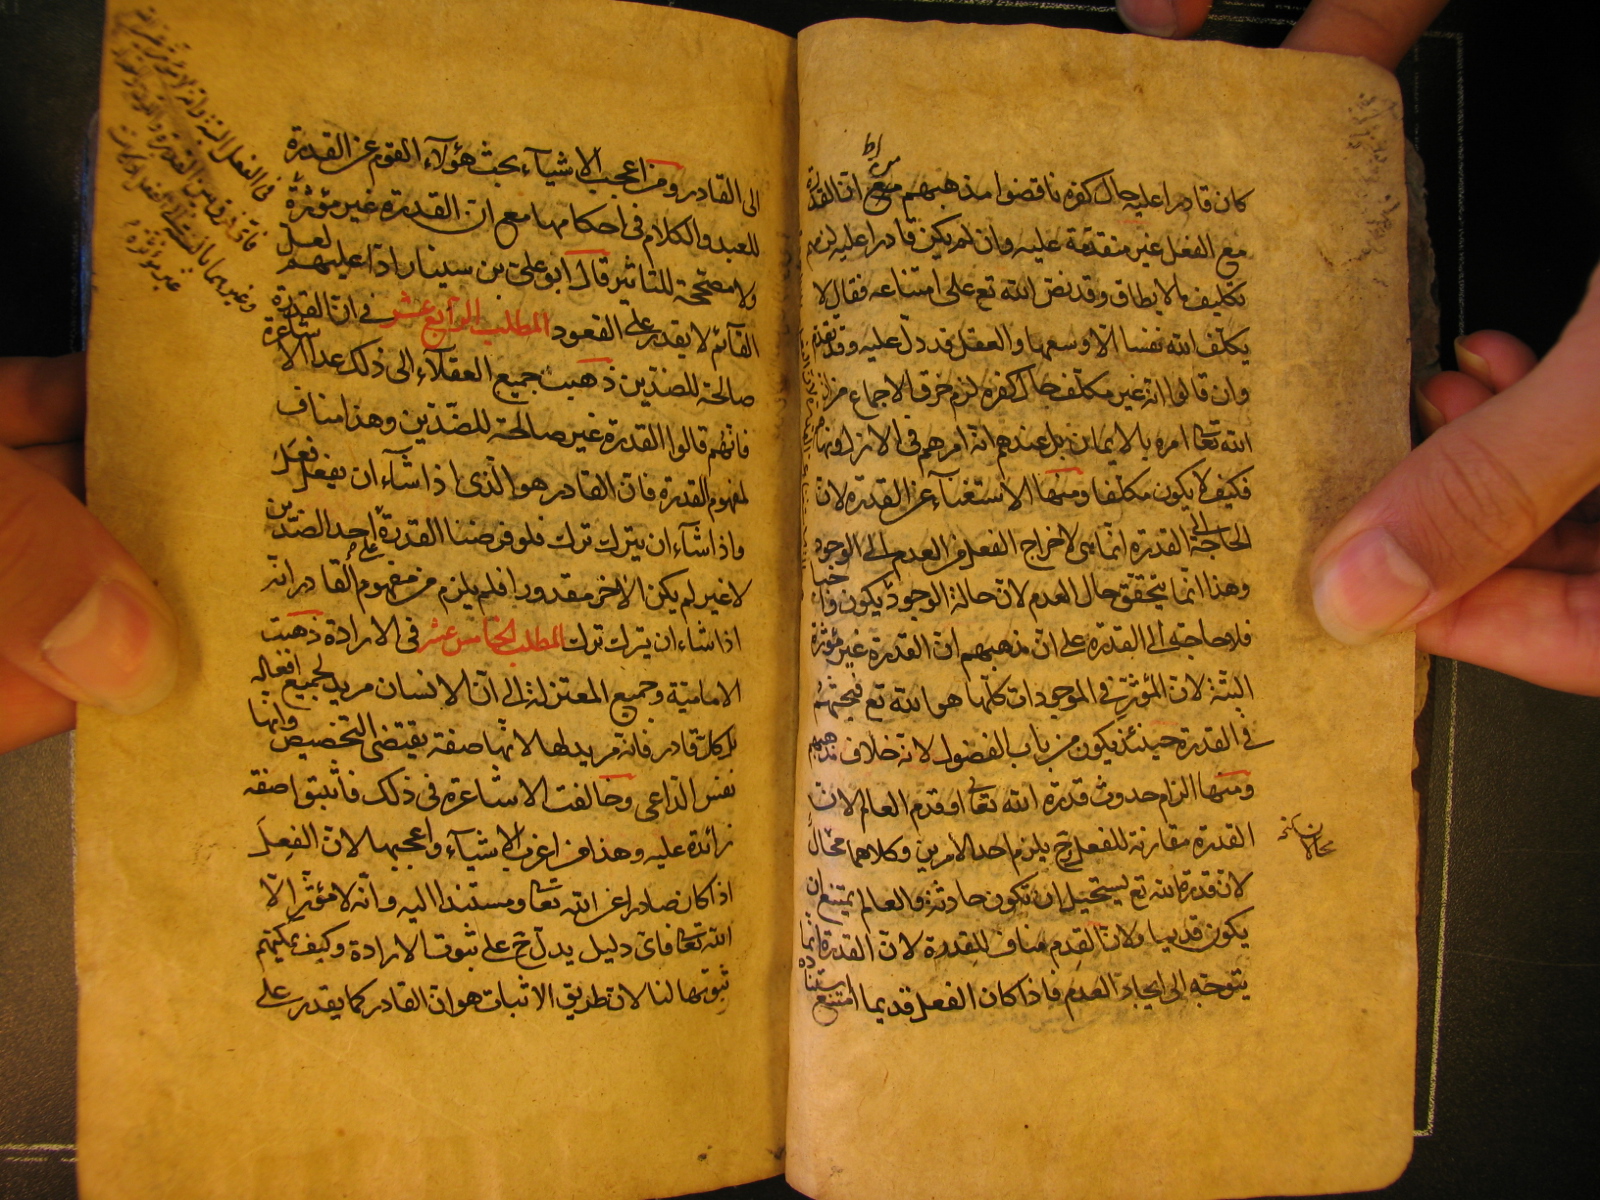 كان قادرا عليه حال كفره ناقضوا مذهبهم مع ان القدرة
مع الفعل غير متقدمة عليه وان لم يكن قادرا عليه لزمهم
تكليف مالايطاق وقد نص الله تع على امتناعه فقال لا
يكلف الله نفسا الا وسعها والعقل قد دل عليه وقد تقدم
وان قالوا انه غير مكلف حال كفره لزم خرق الاجماع من ان
الله تعا امره بالايمان بل عندهم انه امرهم في الازل ونهاهم
فكيف لا يكون مكلفا ومنها الاستغناء عن القدرة لان
الحاجة الى القدرة انما هى لاخراج الفعل من العدم الى الوجود
وهذا انما يتحقق حال العدم لان حالة الوجود يكون واجبا
فلا حاجة الى القدرة على ان مذهبهم ان القدرة غير مؤثرة
البتة لان المؤثر في الموجودات كلها هو الله تع فبحثهم
في القدرة حينئذ يكون من باب الفضول لانه خلاف مذهبهم
ومنها الزام حدوث قدرة الله تعالى او قدم العالم لان
القدرة مقارنة للفعل وح يلزم احد الامرين وكلاهما محال
لان قدرة الله تع يستحيل ان تكون حادثة والعالم يمتنع ان
يكون قديما ولان القدم مناف للقدرة لان القدرة انما
يتوجه الى ايجاد العدم فاذا كان الفعل قديما امتنع استناده
محالان
الى القادر ومن اعجب الاشياء بحث هؤلاء القوم عن القدرة
للعبد والكلام في احكامها مع ان القدرة غير مؤثرة
ولا مصححة للتاثير قال ابو على بن سينا رادا عليهم لعل
القائم لا يقدر على القعود المطلب الرابع عشر في ان القدرة
صالحة للضدين ذهب جميع العقلاء الى ذلك عدا الاشاعرة
فانهم قالوا القدرة غير صالحة للضدين وهذا مناف
لمفهوم القدرة فان القادر هو الذى اذا شاء ان يفعل فعل
واذا شاء ان يترك ترك فلو فرضنا القدرة على احد الضدين
لا غير لم يكن الاخر مقدورا فلم يلزم من مفهوم القادر انه
اذا شاء ان يترك ترك المطلب الخامس عشر في الارادة ذهبت
الامامية وجميع المعتزلة الى ان الانسان مريد لجميع افعاله
بل كل قادر فانه مريد لها لانها صفة يقتضى التخصيص وانها
نفس الداعى وخالفت الاشاعرة في ذلك فاثبتوا صفة
زائدة عليه وهذا من اغرب الاشياء واعجبها لان الفعل
اذا كان صادرا عن الله تعا ومستندا اليه وانه لا مؤثر الا
الله تعا فاى دليل يدل ح على ثبوت الارادة وكيف يمكنهم
ثبوتها لنا لان طريق الاثبات هو ان القادر كما يقدر على
فاى فرق بين القدرة
وغيرها بالنسبة الى الفعل
غير مؤثرة